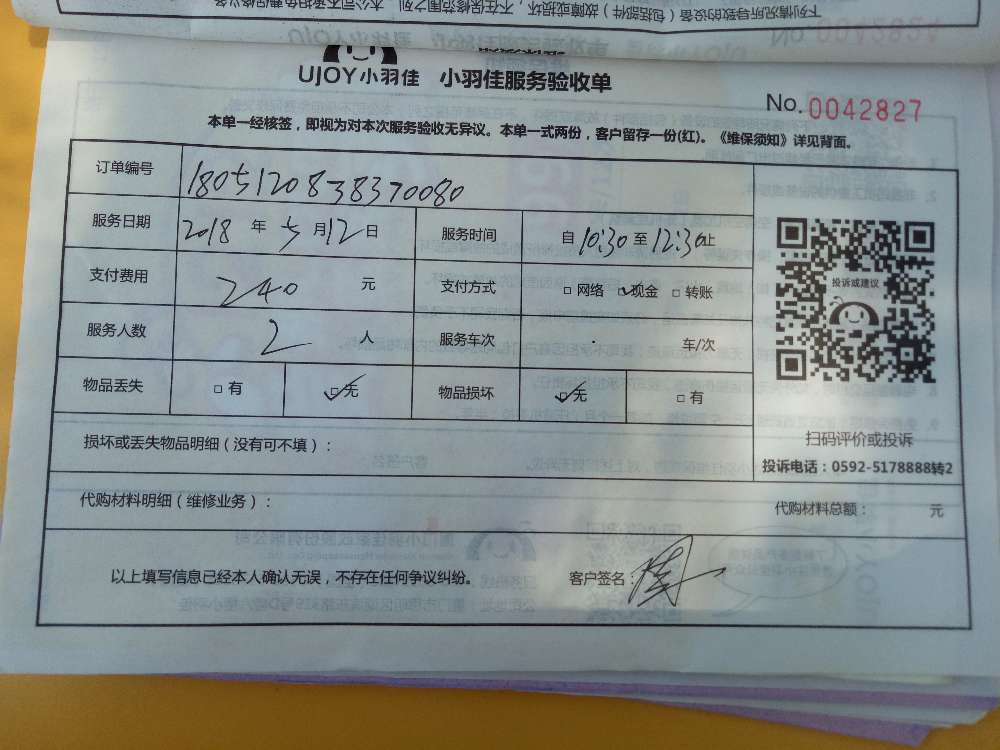 下列情况所导致的设备（包括部件）故障或损坏，不在保修范围之列
No 0042824
UJOY小羽佳 小羽佳服务验收单
No. 0042827
本单一经核签，即视为对本次服务验收无异议。本单一式两份，客户留存一份(红)。《维保须知》详见背面。
订单编号 1805120838370080
服务日期 2018 年 5 月 12 日 服务时间 自 10:30 至 12:30 止
支付费用 240 元 支付方式 □ 网络 ✓ 现金 □ 转账
投诉或建议
服务人数 2 人 服务车次 车/次
物品丢失 □ 有 ✓ 无 物品损坏 ✓ 无 □ 有
扫码评价或投诉
损坏或丢失物品明细（没有可不填）：
投诉电话：0592-5178888转2
代购材料明细（维修业务）： 代购材料总额： 元
以上填写信息已经本人确认无误，不存在任何争议纠纷。 客户签名：